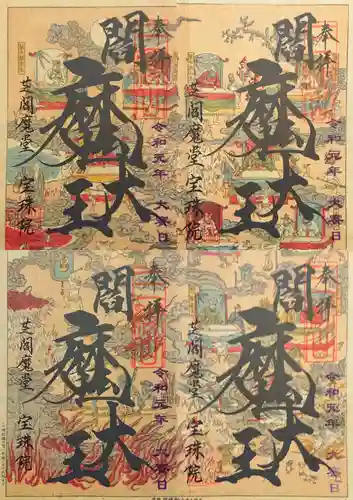 奉拝
閻魔大王
令和元年 大斎日
芝閻魔堂 宝珠院
奉拝
閻魔大王
令和元年 大斎日
芝閻魔堂 宝珠院
奉拝
閻魔大王
令和元年 大斎日
芝閻魔堂 宝珠院
奉拝
閻魔大王
令和元年 大斎日
芝閻魔堂 宝珠院